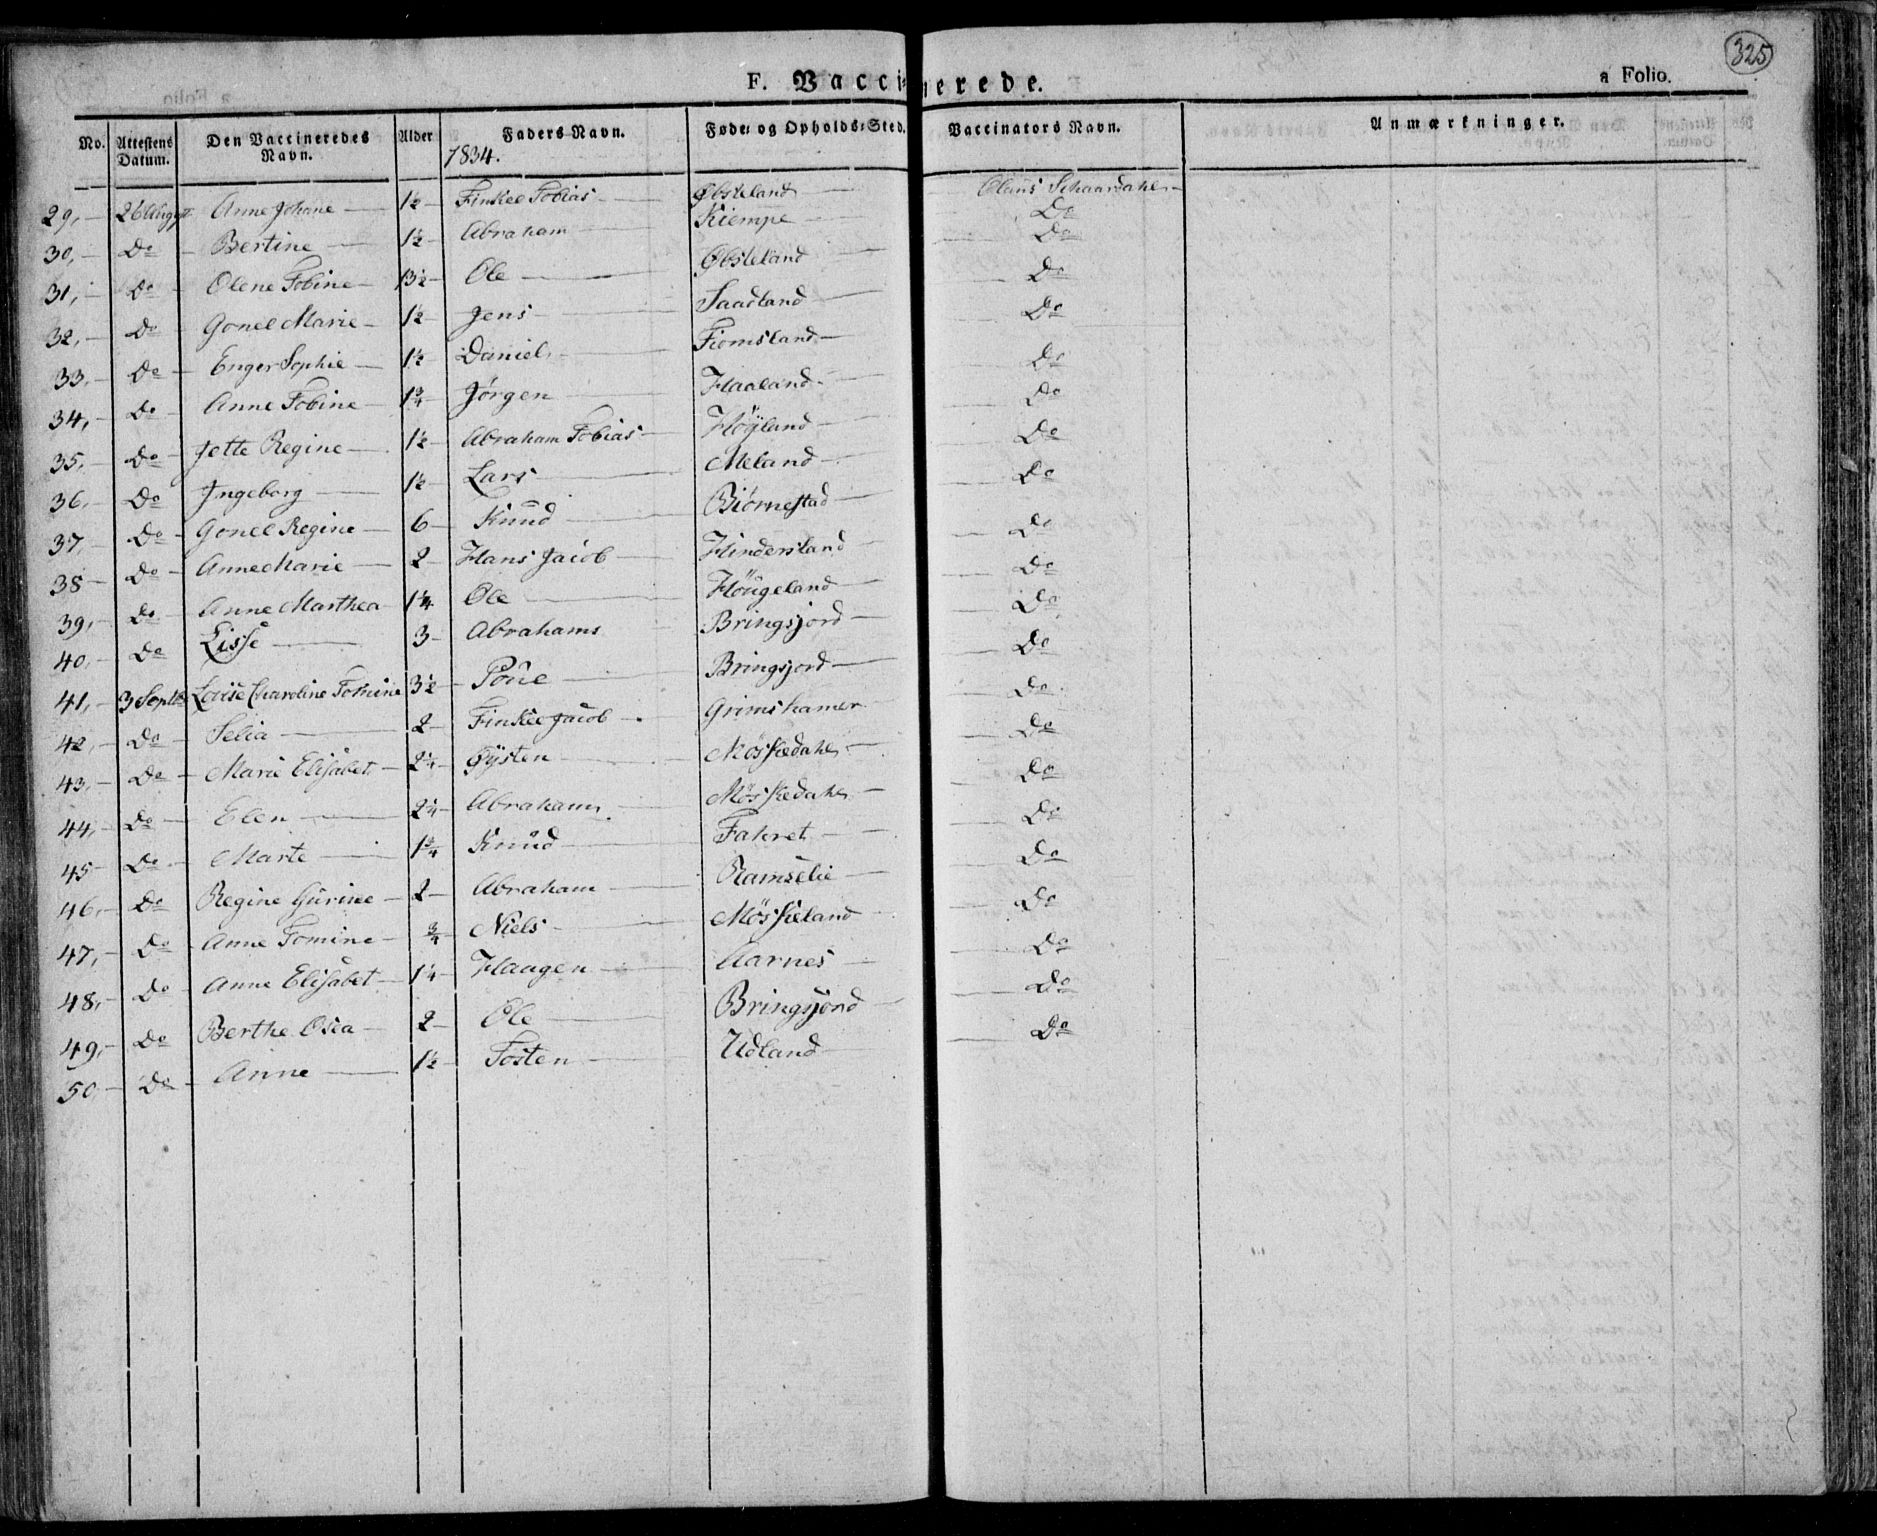 325
F. Vaccinerede.
a Folio.
No. Attestens Datum. Den Vaccineredes Navn. Alder Faders Navn. Føde- og Opholds-Sted. Vaccinators Navn. Anmærkninger.
1834.
29, 26 August Anne Johane 1½ Finkel Tobias Øbsteland Claus Schaardahl
30, Do Bertine 1½ Abraham Kiempe Do
31, Do Olene Tobine 13½ Ole Øbsteland Do
32, Do Gonel Marie 1½ Jens Saadland Do
33, Do Enger Sophie 1½ Daniel Fiomsland Do
34, Do Anne Tobine 1¾ Jørgen Haaland Do
35, Do Jette Regine 1½ Abraham Tobias Höyland Do
36, Do Ingeborg 1½ Lars Meland Do
37 Do Gonel Regine 6 Knud Biörnestad Do
38 Do Anne Marie 2 Hans Jacob Hindersland Do
39, Do Anne Marthea 1¼ Ole Höugeland Do
40, Do Lisse 3 Abraham Bringsjord Do
41, 3 Septb Lovise Charoline Tomine 3½ Poüe Bringsjord Do
42, Do Selia 2 Finkel Jacob Grimshamer Do
43, Do Marie Elisabet 2¼ Øysten Møskedahl Do
44, Do Elen 2¼ Abraham Møskedahl Do
45 Do Marte 1¾ Knud Fahret Do
46, Do Regine Gurine 2 Abraham Ramselie Do
47, Do Anne Tomine ¾ Niels Møskeland Do
48, Do Anne Elisabet 1¼ Haagen Aarnes Do
49, Do Berthe Osea 2 Ole Bringsjord Do
50 Do Anne 1½ Tosten Udland Do